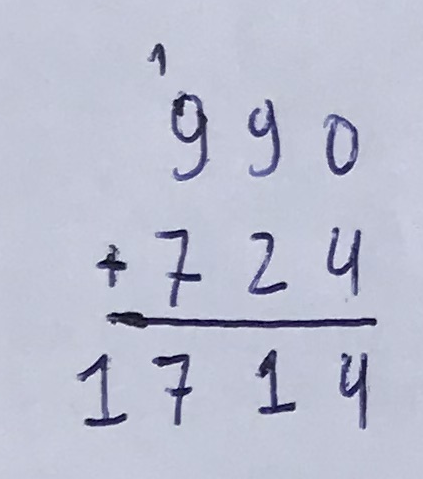 1
990
+ 724
1714